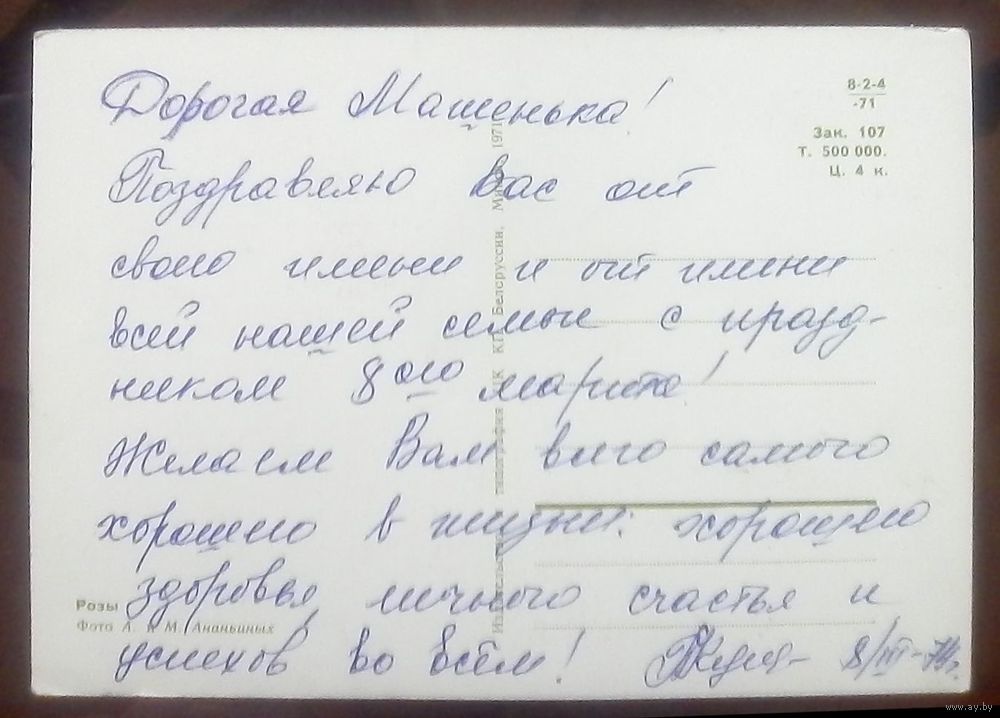 Дорогая Машенька!
Поздравляю Вас от
своего имени и от имени
всей нашей семьи с празд-
ником 8ого марта!
Желаем Вам всего самого
хорошего в жизни: хорошего
здоровья, личного счастья и
успехов во всём!
8/III-
8-2-4
-71
Зак. 107
Т. 500 000.
Ц. 4 к.
Розы
Фото А. и М. Ананьиных
Издательство типография ЦК КП Белоруссии, Минск 1971
www.ay.by